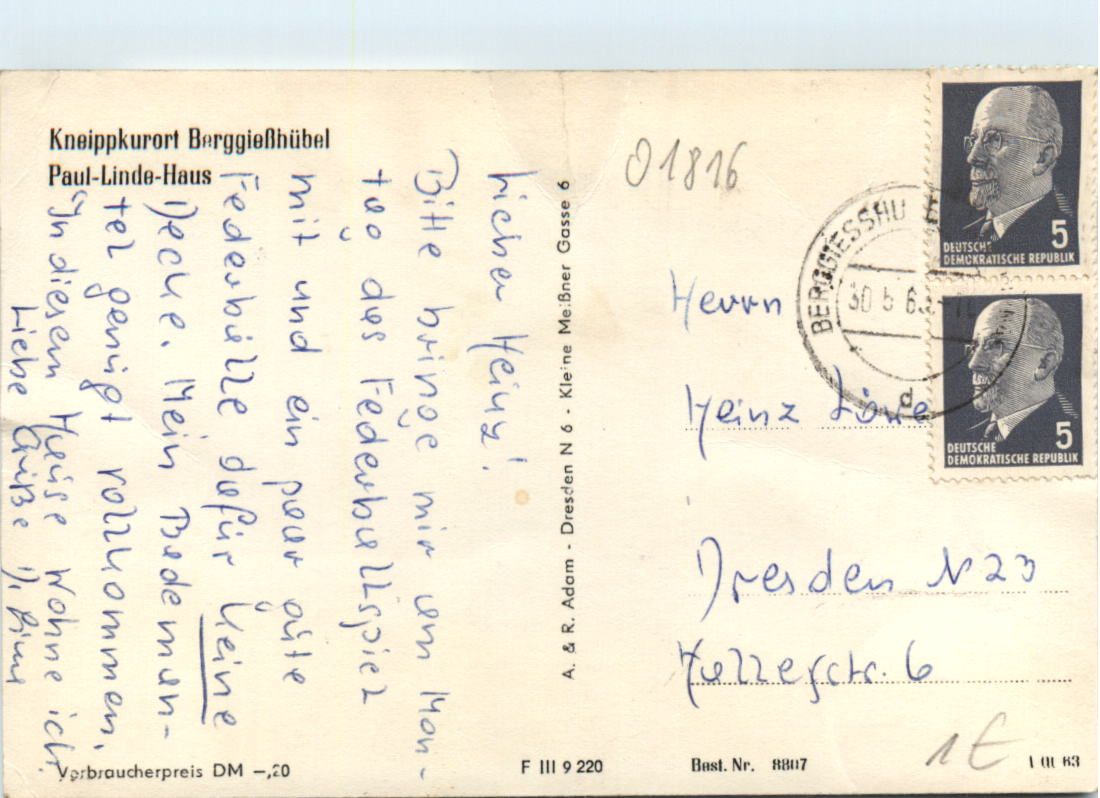 Kneippkurort Berggießhübel
Paul-Linde-Haus
Lieber Heinz!
Bitte bringe mir am Mon-
tag das Federballspiel
mit und ein paar gute
Federbälle dafür keine
Decke. Mein Bademan-
tel genügt vollkommen.
In diesem Hause wohne ich.
Liebe Grüße
Verbraucherpreis DM –,20
A. & R. Adam - Dresden N 6 - Kleine Meißner Gasse 6
F III 9 220
01816
Herrn
Heinz
Dresden N 23
str. 6
Best. Nr. 8807
1€
63
BERGGIESSHÜ
30 5 6
d
5
DEUTSCHE
DEMOKRATISCHE REPUBLIK
5
DEUTSCHE
DEMOKRATISCHE REPUBLIK